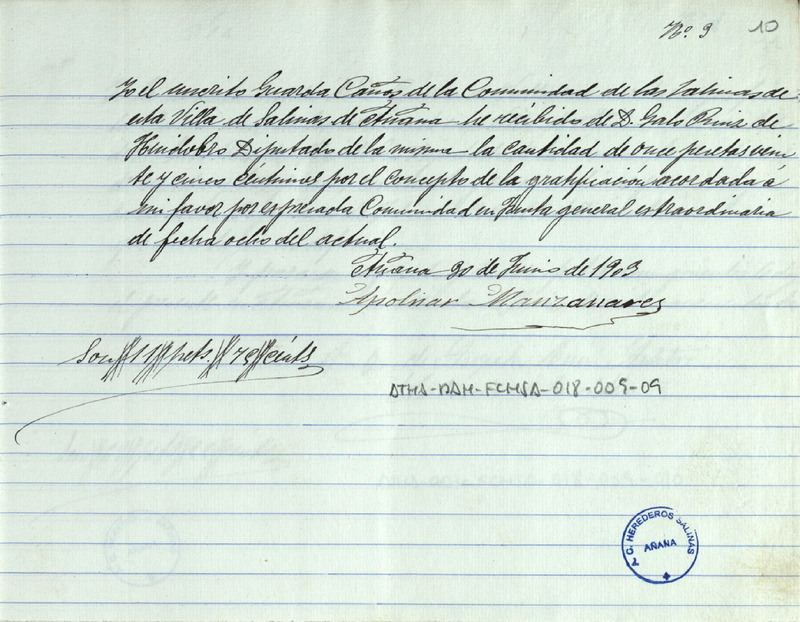 Nº. 9
10
Yo el inscrito Guarda Caños de la Comunidad de las Salinas de
esta Villa de Salinas de Añana he recibido de D. Galo Ruiz de
Huidobro Diputado de la misma la cantidad de once pesetas vein
te y cinco centimos por el concepto de la gratificación acordada á
mi favor por expresada Comunidad en Junta general extraordinaria
de fecha ocho del actual.
Añana 30 de Junio de 1903
Apolinar Manzanares
Son 11 pets. cénts
ATHA-DAH-FCHSA-018-005-09
C. HEREDEROS SALINAS
AÑANA